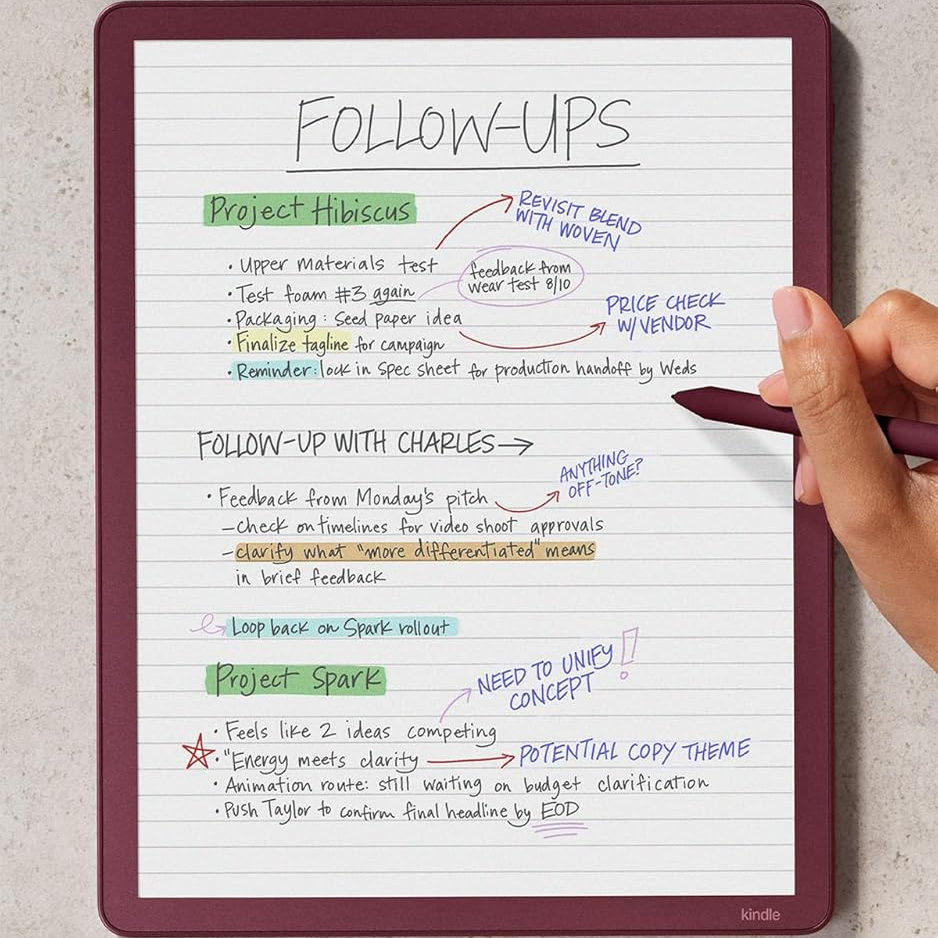 FOLLOW-UPS
Project Hibiscus
REVISIT BLEND
WITH WOVEN
• Upper materials test
feedback from
wear test 8/10
• Test foam #3 again
• Packaging: Seed paper idea
PRICE CHECK
W/VENDOR
• Finalize tagline for campaign
• Reminder: lock in spec sheet for production handoff by Weds
FOLLOW-UP WITH CHARLES→
ANYTHING
OFF-TONE?
• Feedback from Monday's pitch
– check on timelines for video shoot approvals
– clarify what "more differentiated" means
in brief feedback
Loop back on Spark rollout
Project Spark
NEED TO UNIFY
CONCEPT!
• Feels like 2 ideas competing
• "Energy meets clarity → POTENTIAL COPY THEME
• Animation route: still waiting on budget clarification
• Push Taylor to confirm final headline by EOD
kindle